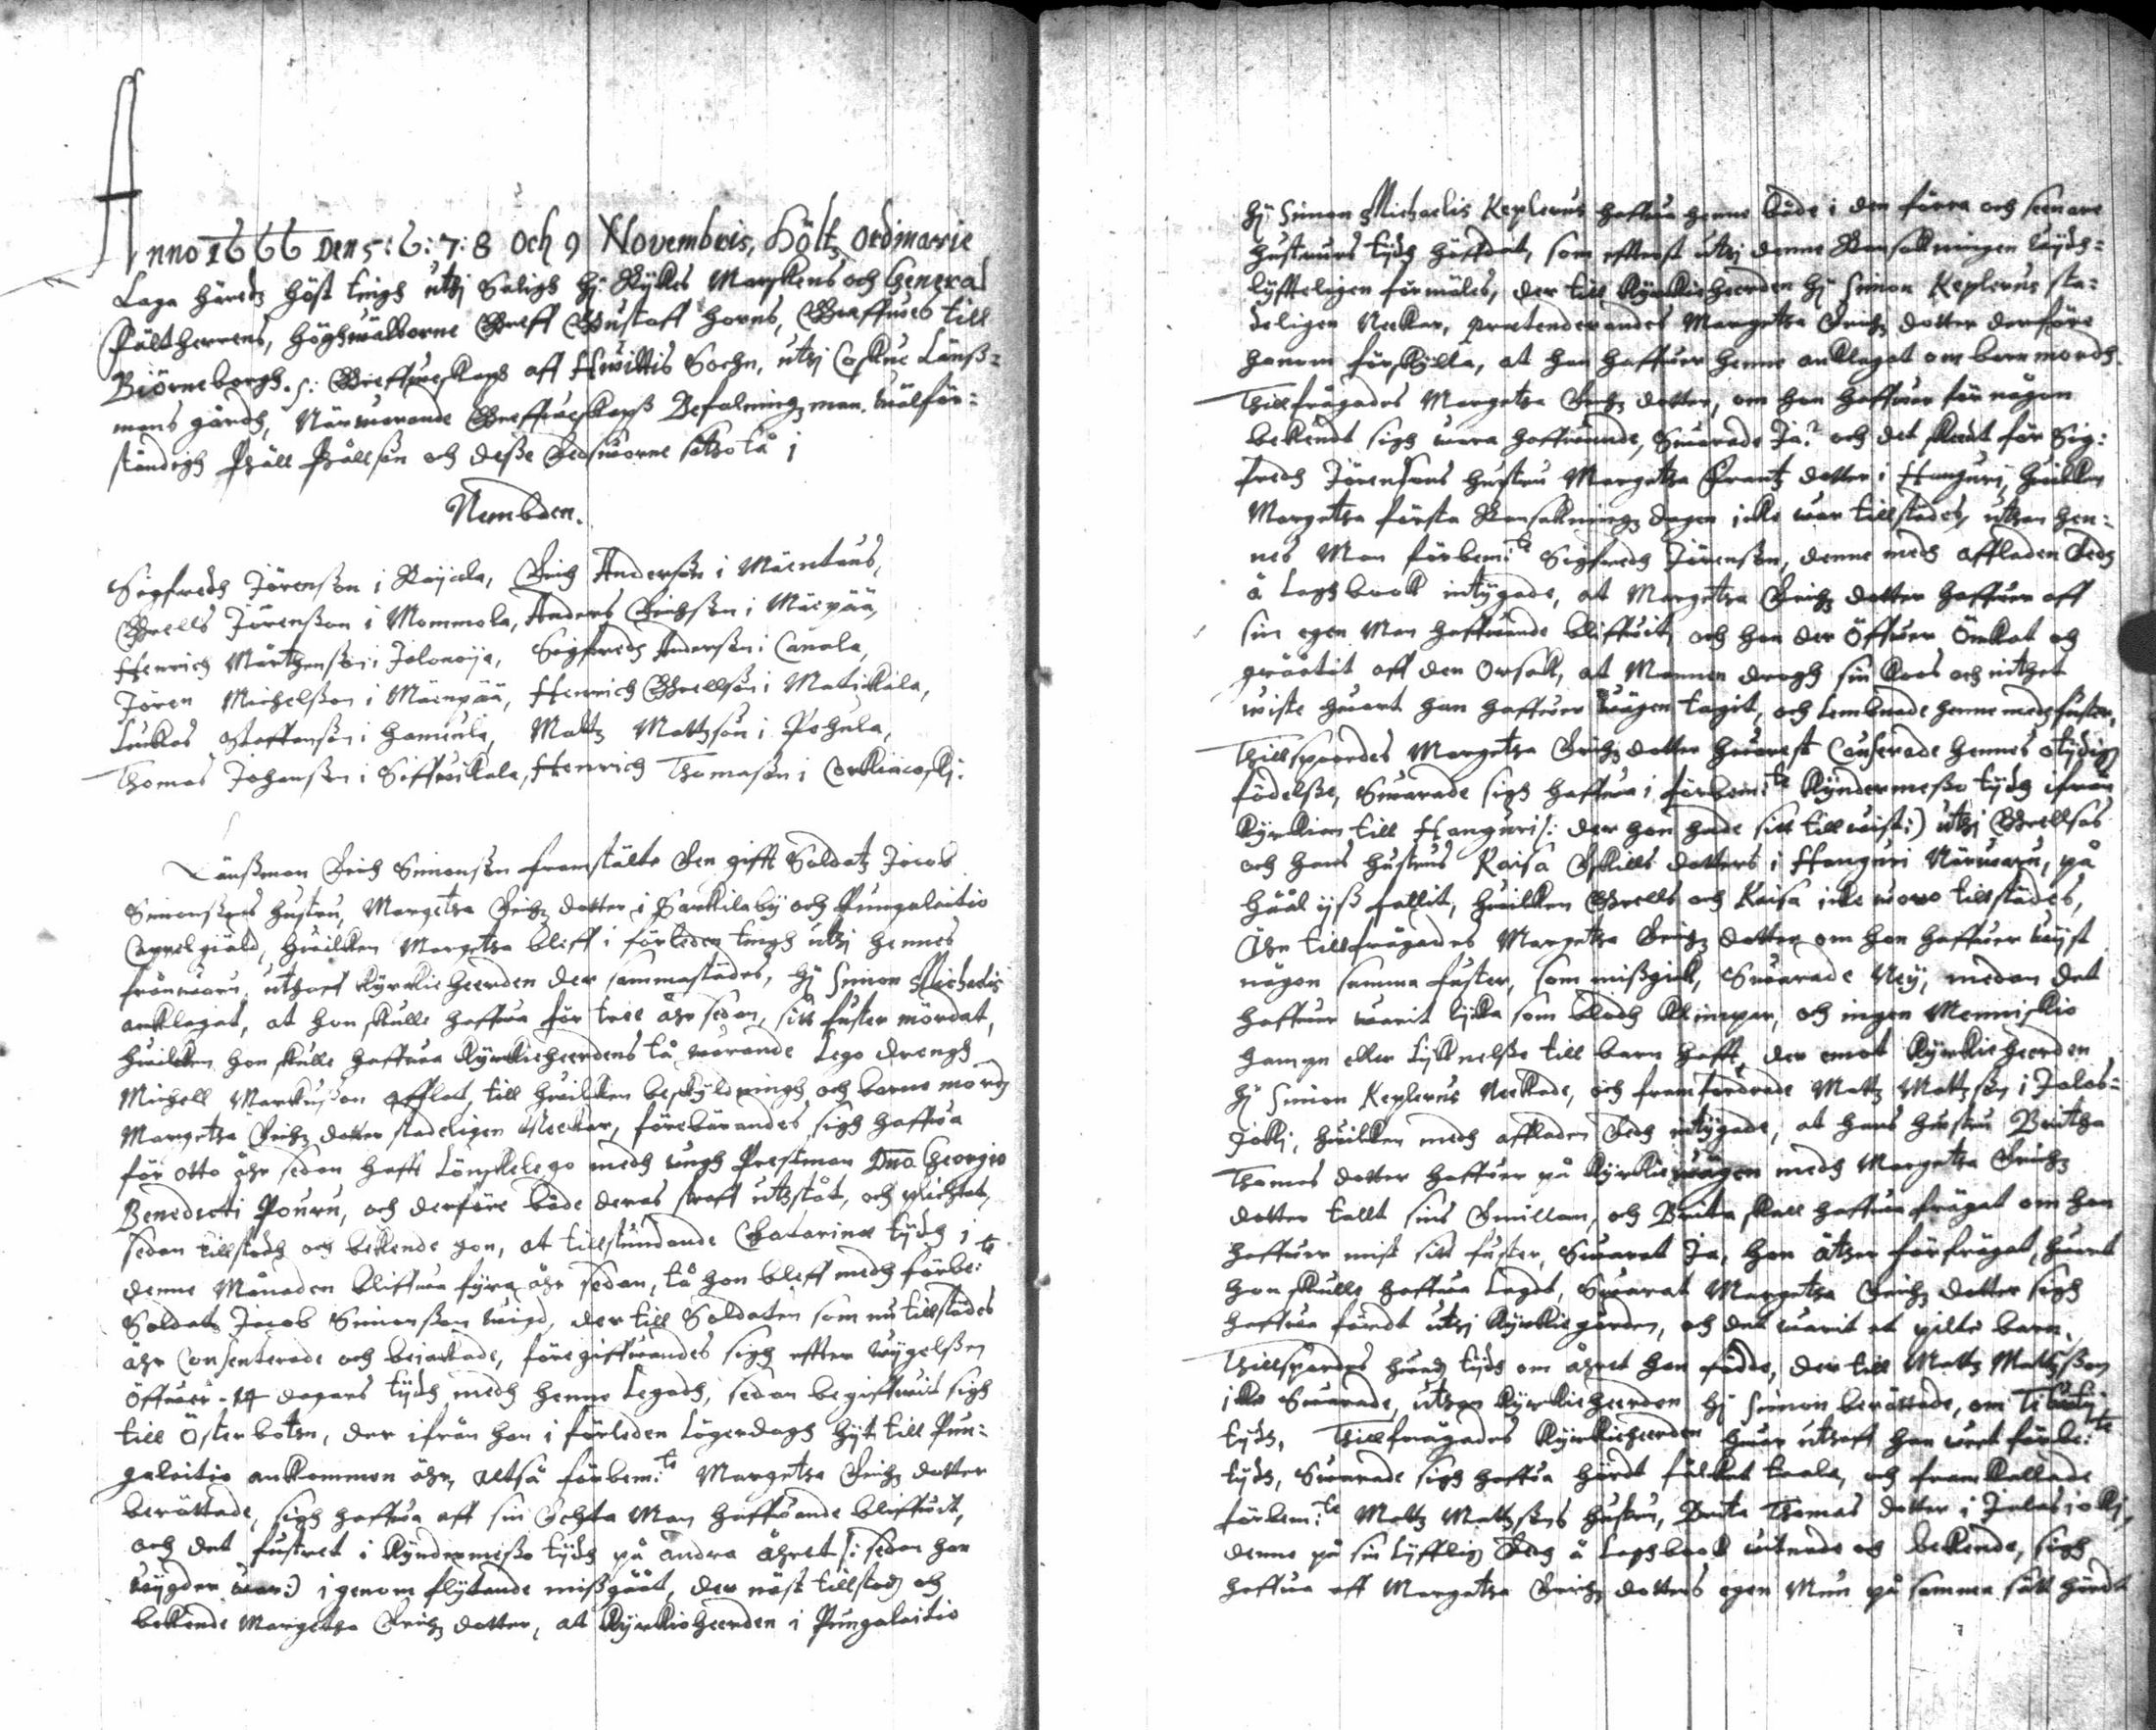 Anno 1666 Den 5: 6: 7: 8 och 9 Novembris, höltz ordinarie
Laga häredz höst tingh uthj Saligh hr: Rijkles Marskens och General
Fältherrens, höghwälborne Greff Gustaff Horns, Greffwes till
Biörneborgh. s: Greffweskaps aff Hwittis Sochn, uthj Caskue Länß=
mans gårdh, Närwarande Greffweskapß Befalningzman. wälför=
ståndigh Påll Pållson och deße Edsworne såsotå j
Nembden.
Sigfredh Jörenßon i Raijala, Erich Anderßon i Mäentaus,
Grells Jörenßon i Mommola, Anders Erichßon i Mäepää,
Henrich Mårthenßon i Jalonoija, Sigfredh Anderßon i Canala,
Jören Michelßon i Mäenpää, Henrich Grellßon i Matickala,
Luckas Staffanßon i Hamuula, Mattz Mattzson i Pohula,
Thomas Johanßon i Siffwikala, Henrich Thomaßon i Corkiacoskj.
Länßman Erich Simonßon framstälte Een gifft Soldatz Jacob
Simonßons hustru, Margetha Erichz dotter i Sarkilaby och Pungalaitio
Cappelgiäld, hwilken Margetha bleff i förleden tingh uthj hennes
frånwaru, uthaff Kyrkieheerden der sammastädes, hr Simon Michaelis
anklagat, at hon skulle haffwa för tree åhr sedan, sitt fuster mördat,
hwilken hon skulle haffwa Kyrkieheerdens tå warande Lego drengh
Michell Markußon afflat, till hwilken beskyldningh och barne mord
Margetha Erichz dotter stadeligen Neekar, förebärandes sigh haffwa
för otto åhr sedan hafft Lönskelego medh ungh Prestman Dno. Georgio
Benedicti Pouru, och derföre både deras straff uthstått, och plichtat,
sedan tillstodh och bekende hon, at tillstundande Catarinæ tijdh i
denne Månaden bliffwa fyra åhr sedan, tå hon bleff medh förbe:te
Soldat Jacob Simonßon wigd, der till Soldaten som nu tillstädes
ähr Consenterade och bejackade, föregiffwandes sigh effter wijgelßen
öffwer 14 dagars tijdh medh henne Legadh, sedan begiffwit sigh
till Österbotn, der ifrån han i förleden Lögerdagh hijt till Pun=
galaitio ankommen ähr, altså förbem:te Margetha Erichz dotter
berättade, sigh haffwa aff sin Echta Man haffwande bliffwit,
och det fustret i Kyndermeßo tijdh på andra åhret /: sedan hon
wijgder war :/ igenom flytande mißgått, der näst tillstod och
bekende Margetha Erichz dotter, at Kyrkioheerden i Pungalaitio
hr Simon Michaelis Keplerus haffwa henne både i den förra och seenare
hustrurs tijdh häffdat, som effterst uthj denne Ransakningen wijdh=
lyffteligen förmäles, der till Kyrkieheerden hr Simon Keplerus sta=
deligen Neekar, prætenderandes Margetha Erichz dotter derföre
honom förskylla, at han haffwer henne anklagat om barnmordh.
Thillfrågades Margetha Erichz dotter, om hon haffwer för någon
bekendt sigh wara haffwande, Swarade Ja? och det skedt för Sig:
fredh Jörenßons hustru Margetha Frantz dotter i Hanguri, hwilken
Margetha första Ransakningz dagen icke war tillstädes, uthan hen=
nes Man förbem:te Sigfredh Jörenßon, denne medh affladen Eedh
å Laghbook intygade, at Margetha Erichz dotter haffwer aff
sin egen Man haffwande bliffwit, och hon der öffwer ömkat och
gråtit aff den Orsak, at Mannen drogh sin Koos och inthet
wiste hwart han haffwer wägen tagit, och Lembnade henne medh fuster,
Thillspordes Margetha Erichz dotter hwarest Causerade hennes otydig
födelße, Swarade sigh haffwa i förbem:te Kyndermeßo tijdh ifrån
Kyrkian till Hanguri /: der hon hade sitt tillwist :/ uthj Grellsas
och hans hustrus Kaisa Eskills dotters i Hanguri Närwaru, på
hååt ijß fallit, hwilken Grells och Kaisa icke woro tillstädes,
Åhn tillfrågades Margetha Erichz dotter om hon haffwer wijst
någon samma fuster, som mißgick, Swarade Neij, medan det
haffwer warit lycka som blodh Klimpar, och ingen Menniskio
hampn eller Lyknelße till barn hafft, der emot Kyrkieheerden
hr Simon Keplerus Neekade, och framfordrade Mattz Mattzßon i Jalas=
jokj, hwilken medh affladen Eedh intygade, at hans hustru Britha
Thomas dotter haffwer på Kyrkiewägen medh Margetha Erichz
dotter tallt sins Emillam, och Brita skall haffwa frågat om hon
haffwer mist sitt fuster, Swarat Ja, hon åther förfrågat, hwart
hon skulle haffwa Lagdt, Swarat Margetha Erichz dotter sigh
haffwa fördt uthj Kyrkiegården, och det warit et pilte barn,
Thillspordes hwadh tijdh om åhret hon födde, der till Mattz Mattzßon
icke Swarade, uthan Kyrkieheerden hr Simon berättade, om Tiburtij
tijdh, Thillfrågades Kyrkieheerden hwar uthaff han wet förbe:te
tijdh, Swarade sigh haffwa hördt fålket taala, och framkallade
förbem:te Mattz Mattzßons hustru, Brita Thomas dotter i Jalasjokj,
denne på sin Lyfflig Eedh å Laghbook witnade och bekende, sigh
haffwa aff Margetha Erichz dotters egen Mun på samma sätt hördt